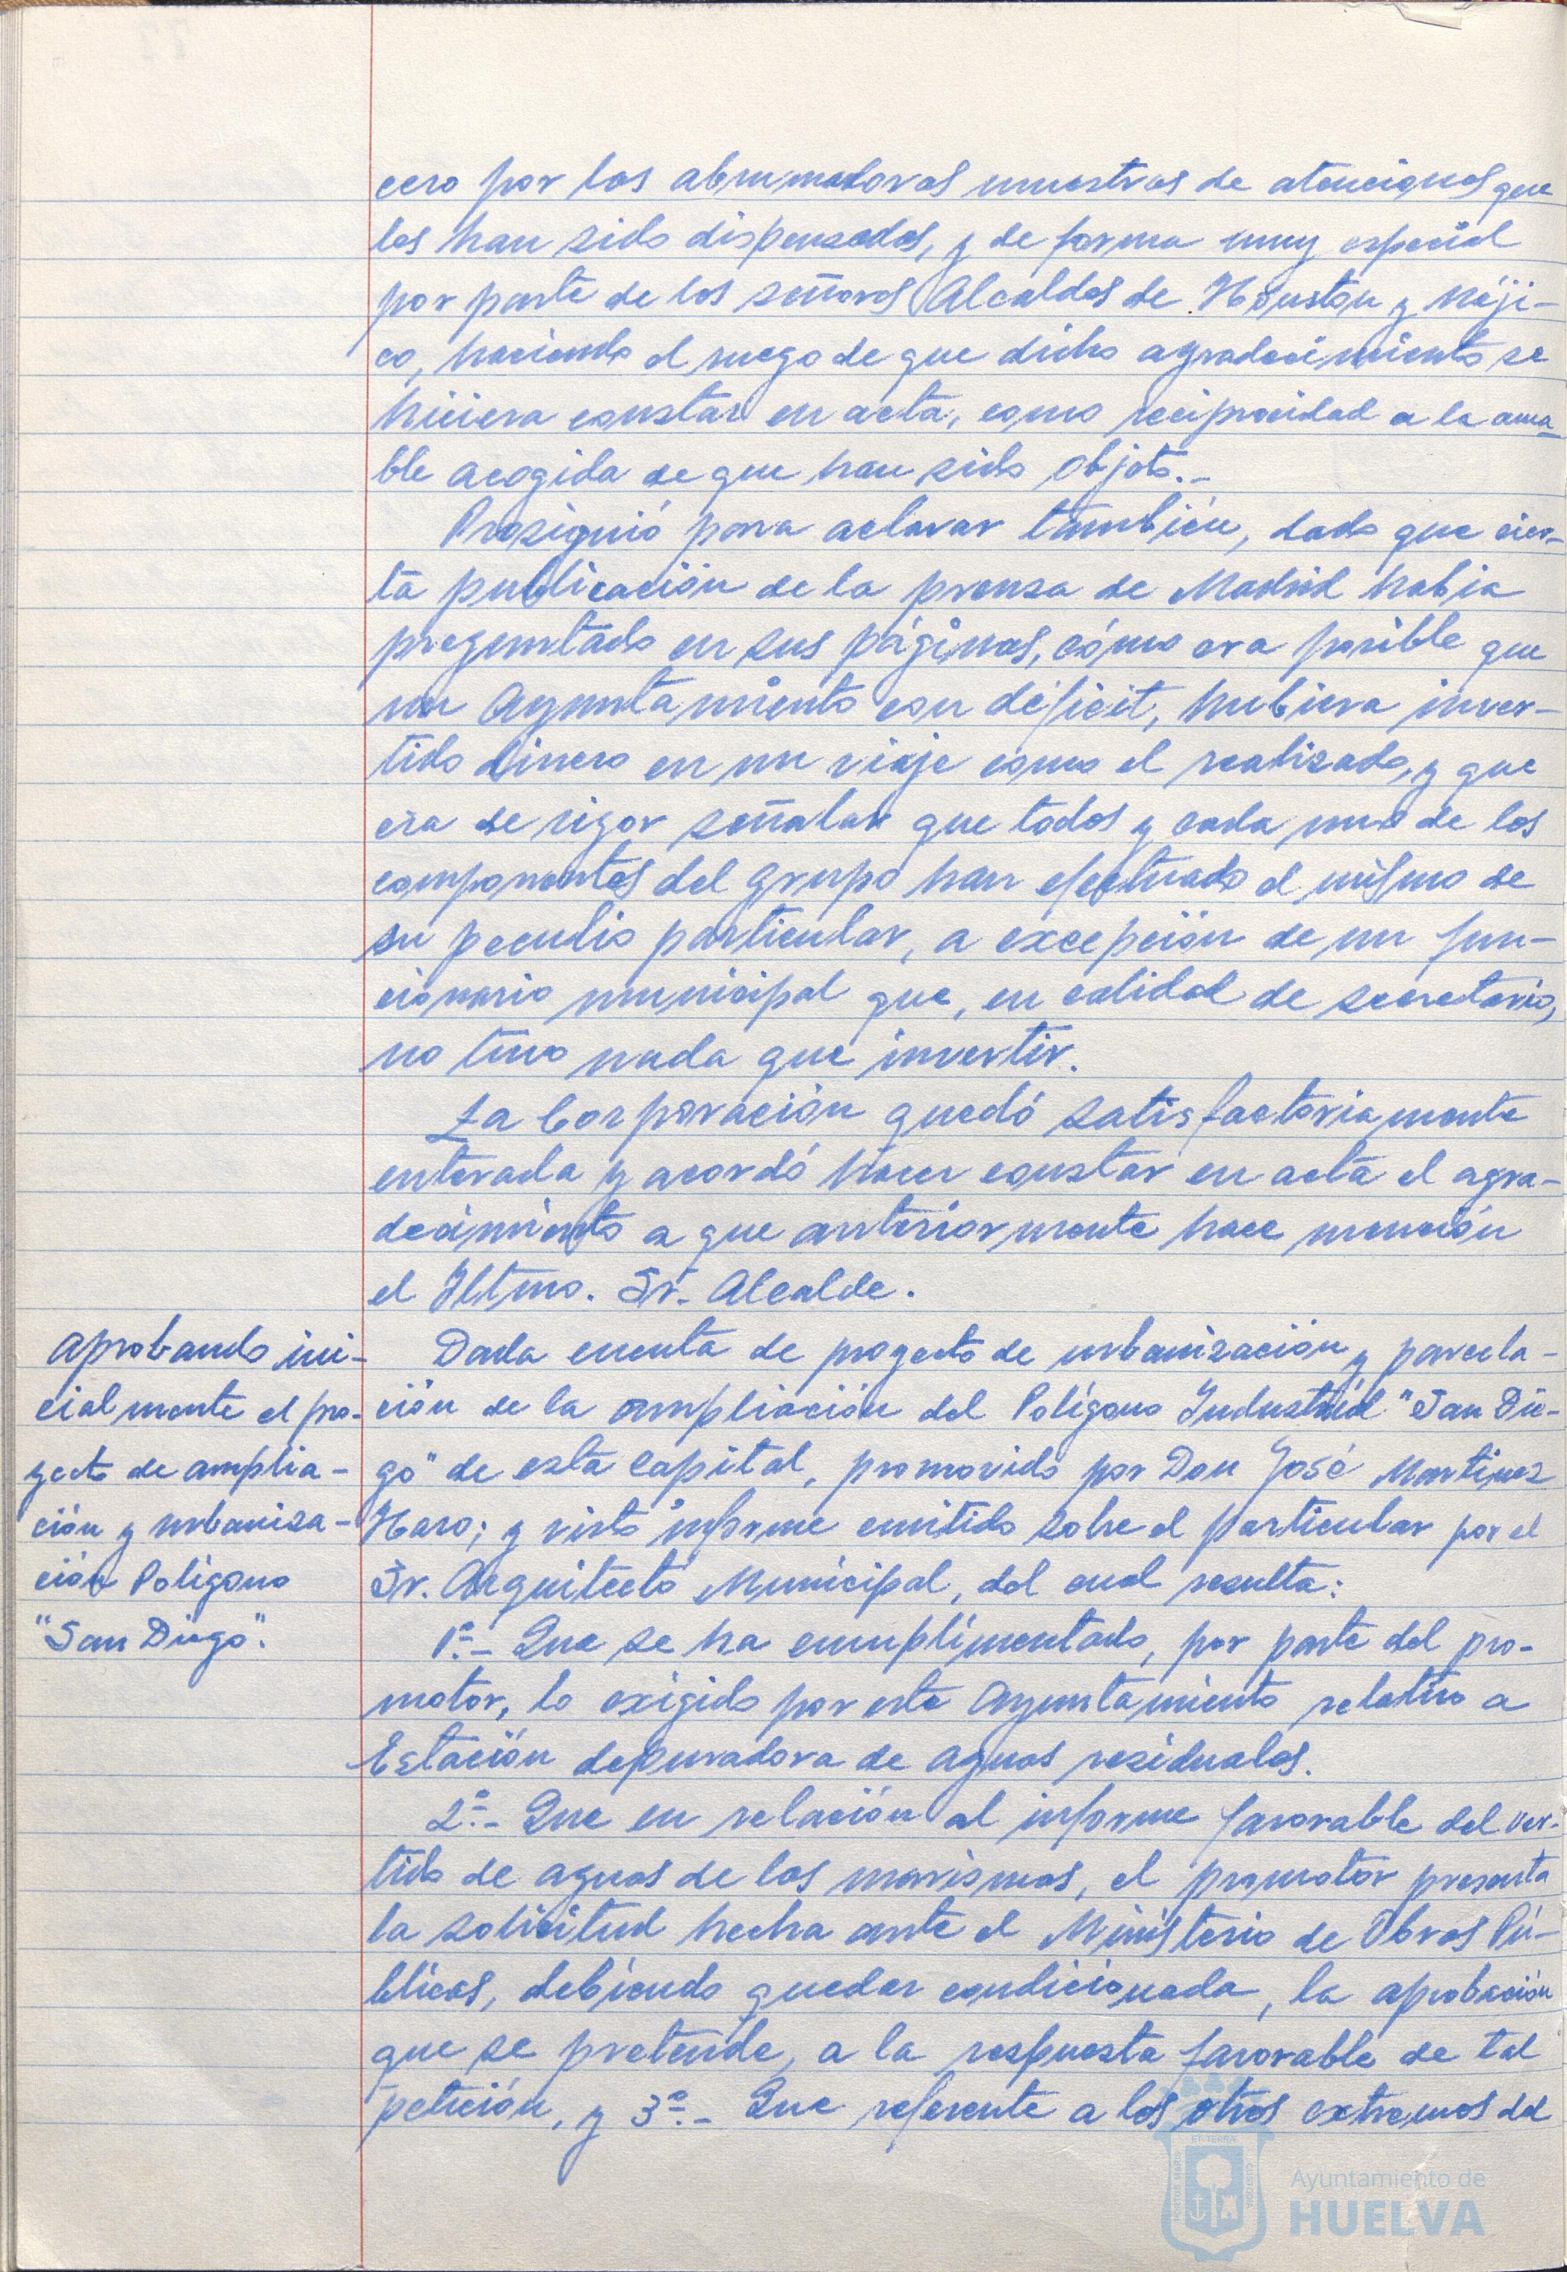 cero por las abrumadoras muestras de atenciones que
les han sido dispensadas, y de forma muy especial
por parte de los señores Alcaldes de Houston y Méji-
co, haciendo el ruego de que dicho agradecimiento se
hiciera constar en acta, como reciprocidad a la ama-
ble acogida de que han sido objeto.-
Prosiguió para aclarar también, dado que cier-
ta publicación de la prensa de Madrid habia
preguntado en sus páginas, cómo era posible que
un Ayuntamiento con déficit, hubiera inver-
tido dinero en un viaje como el realizado, y que
era de rigor señalar que todos y cada uno de los
componentes del grupo han efectuado el mismo de
su peculio particular, a excepción de un fun-
cionario municipal que, en calidad de secretario,
no tuvo nada que invertir.
La Corporación quedó satisfactoriamente
enterada y acordó hacer constar en acta el agra-
decimiento a que anteriormente hace mención
el Iltmo. Sr. Alcalde.
Aprobando ini-
cialmente el pro-
yecto de amplia-
ción y urbaniza-
ción Polígono
"San Diego".
Dada cuenta de proyecto de urbanización y parcela-
ción de la ampliación del Polígono Industrial "San Die-
go" de esta Capital, promovido por Don José Martinez
Haro; y visto informe emitido sobre el particular por el
Sr. Arquitecto Municipal, del cual resulta:
1º.- Que se ha cumplimentado, por parte del pro-
motor, lo exigido por este Ayuntamiento relativo a
Estación depuradora de aguas residuales.
2º.- Que en relación al informe favorable del ver-
tido de aguas de las marismas, el promotor presenta
la solicitud hecha ante el Ministerio de Obras Pú-
blicas, debiendo quedar condicionada, la aprobación
que se pretende, a la respuesta favorable de tal
petición, y 3º.- Que referente a los otros extremos del
Ayuntamiento de
HUELVA